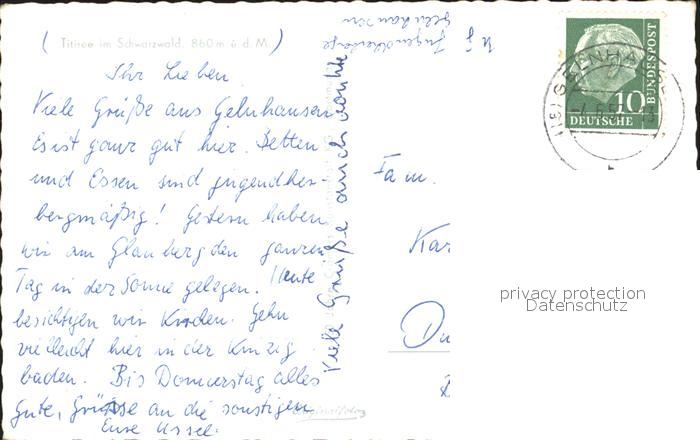 ( Titisee im Schwarzwald, 860 m ü. d. M. )
Ihr Lieben
Viele Grüße aus Gelnhausen
Es ist ganz gut hier. Betten
und Essen sind jugendher-
bergmäßig! Gestern haben
wir am Glauberg den ganzen
Tag in der Sonne gelegen. Heute
besichtigen wir Kirchen. Gehn
vielleicht hier in der Kinzig
baden. Bis Donnerstag alles
Gute, Grüsse an die sonstigen
Eure
Viele Grüße auch
Jugendherberge
Gelnhausen
Originalfoto
GELNHAUSEN
10
DEUTSCHE
BUNDESPOST
Fam.
Kar
Du
privacy protection
Datenschutz